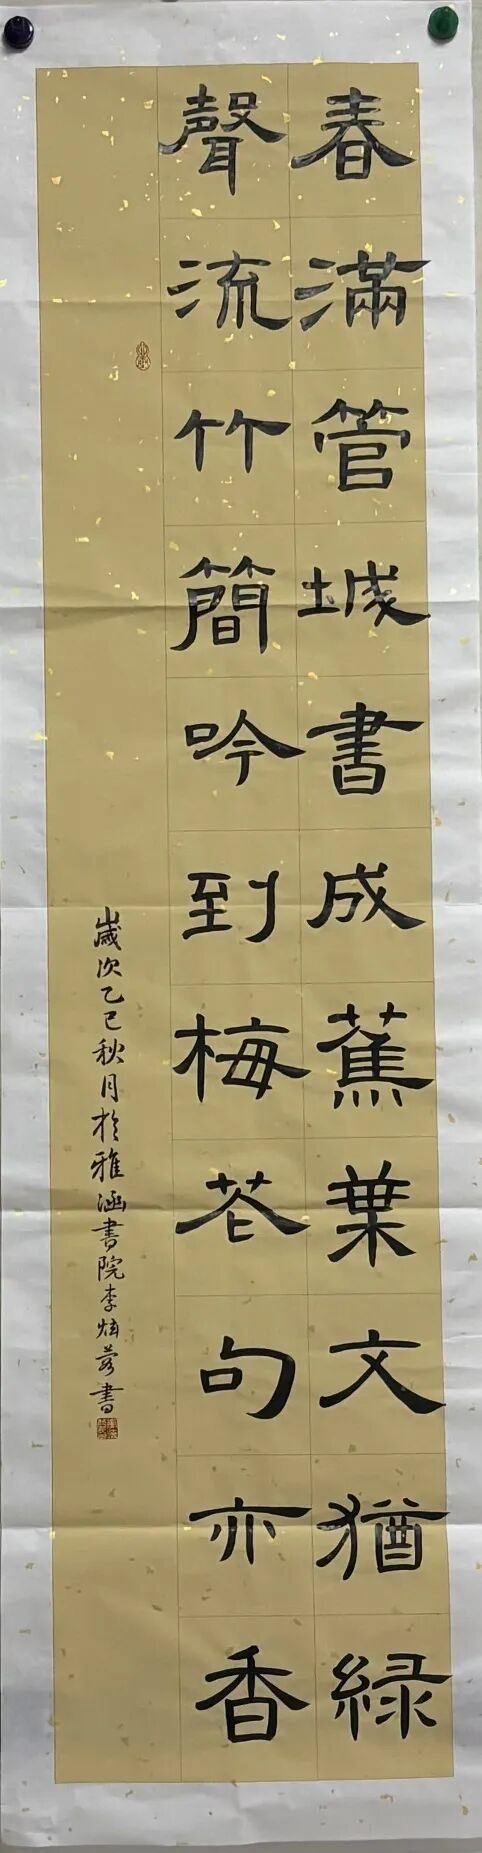 春滿管城書成蕉葉文猶緑
聲流竹簡吟到梅花句亦香
歲次乙巳秋月於雅涵書院李炫蓉書